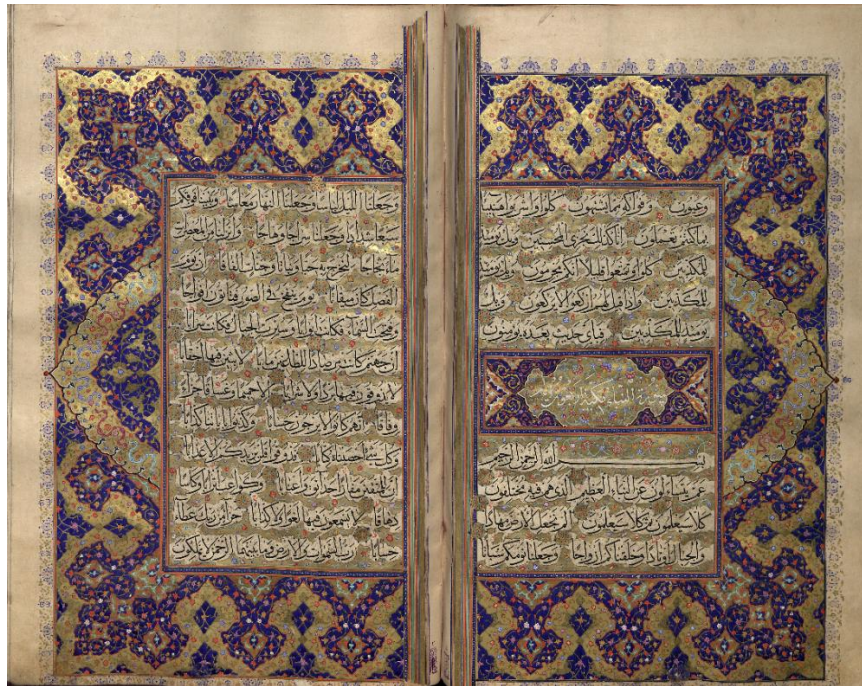 وعيون وفواكه مما يشتهون كلوا واشربوا هنيئا
بما كنتم تعملون انا كذلك نجزي المحسنين ويل يومئذ
للمكذبين كلوا وتمتعوا قليلا انكم مجرمون ويل يومئذ
للمكذبين واذا قيل لهم اركعوا لا يركعون ويل
يومئذ للمكذبين فباي حديث بعده يؤمنون
سورة النبا مكية اربعون
بسم الله الرحمن الرحيم
عم يتساءلون عن النبا العظيم الذي هم فيه مختلفون
كلا سيعلمون ثم كلا سيعلمون الم نجعل الارض مهادا
والجبال اوتادا وخلقناكم ازواجا وجعلنا نومكم سباتا
وجعلنا الليل لباسا وجعلنا النهار معاشا وبنينا فوقكم
سبعا شدادا وجعلنا سراجا وهاجا وانزلنا من المعصرات
ماء ثجاجا لنخرج به حبا ونباتا وجنات الفافا ان يوم
الفصل كان ميقاتا يوم ينفخ في الصور فتاتون افواجا
وفتحت السماء فكانت ابوابا وسيرت الجبال فكانت سرابا
ان جهنم كانت مرصادا للطاغين مابا لابثين فيها احقابا
لا يذوقون فيها بردا ولا شرابا الا حميما وغساقا جزاء
وفاقا انهم كانوا لا يرجون حسابا وكذبوا باياتنا كذابا
وكل شيء احصيناه كتابا فذوقوا فلن نزيدكم الا عذابا
ان للمتقين مفازا حدائق واعنابا وكواعب اترابا وكاسا
دهاقا لا يسمعون فيها لغوا ولا كذابا جزاء من ربك عطاء
حسابا رب السموات والارض وما بينهما الرحمن لا يملكون